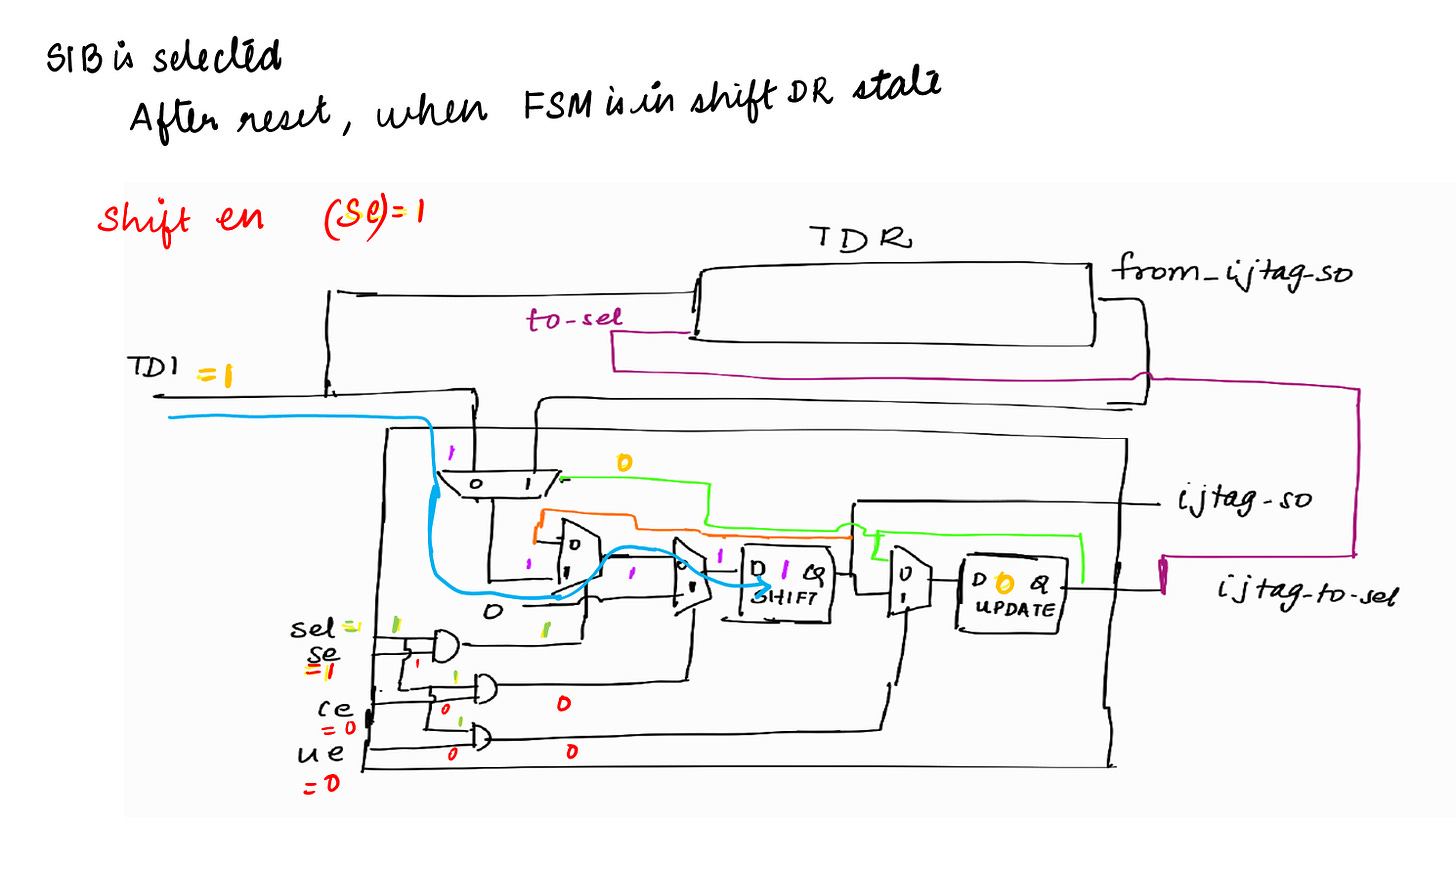 SIB is selected
After reset, when FSM is in shift DR state
Shift en (se)=1
TDR
from_ijtag-so
to-sel
TDI =1
1
0
0 1
ijtag-so
0
1
1
1
1
0
1
D 1 Q
SHIFT
0
1
D 0 Q
UPDATE
0
ijtag-to-sel
sel=1
1
1
se
=1
1
1
ce
=0
0
0
1
ue
=0
0
0